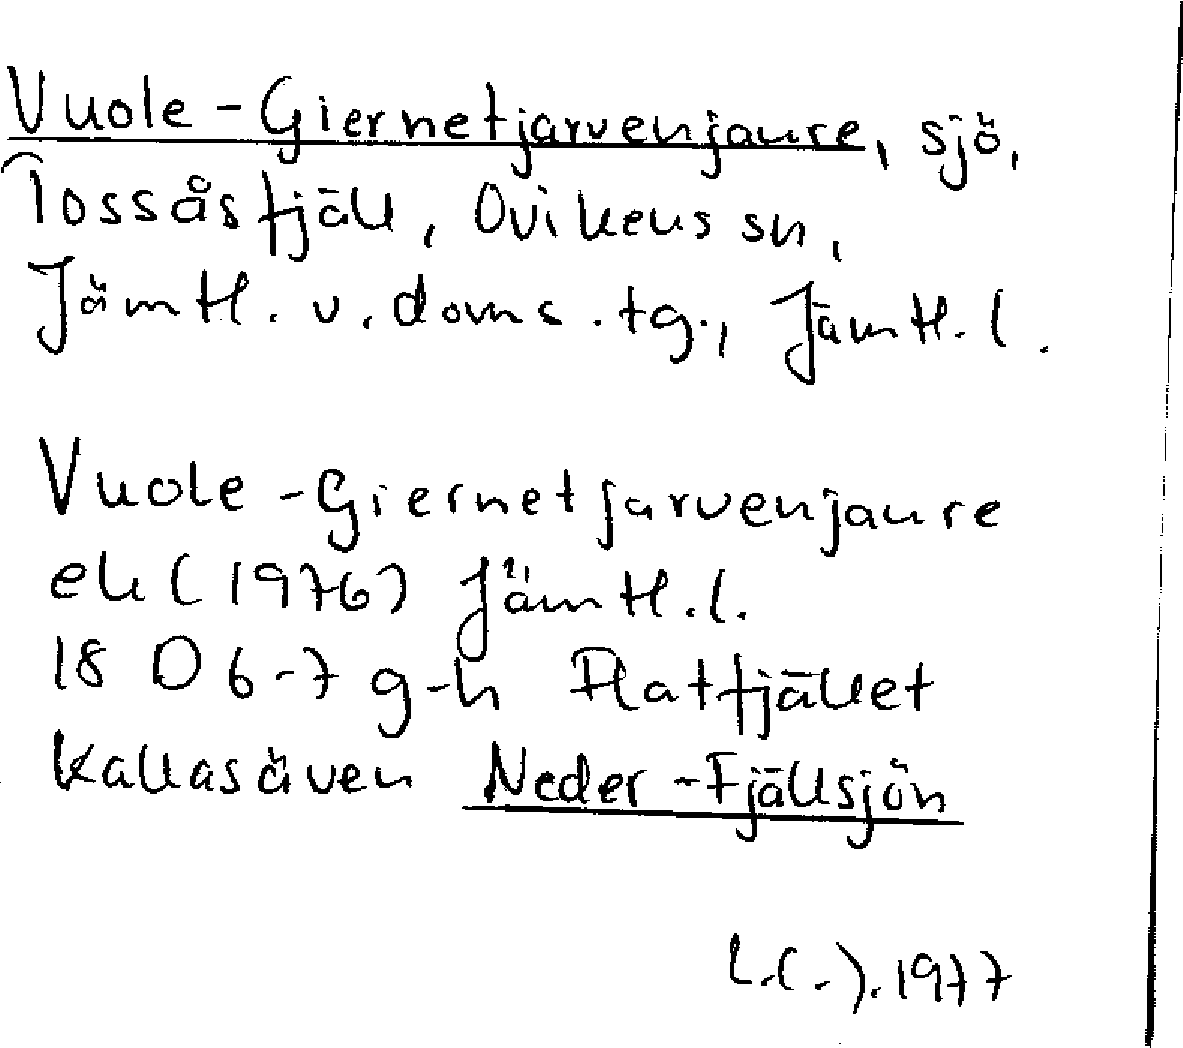 Vuole-Giernetjarvenjaure, sjö,
Tossåsfjäll, Ovikens sn,
Jämtl. v. doms. tg., Jämtl. l.
Vuole-Giernetjarvenjaure
ek (1976) Jämtl. l.
18 D 6-7 g-h Flatfjället
Kallas även Neder-Fjällsjön
1977